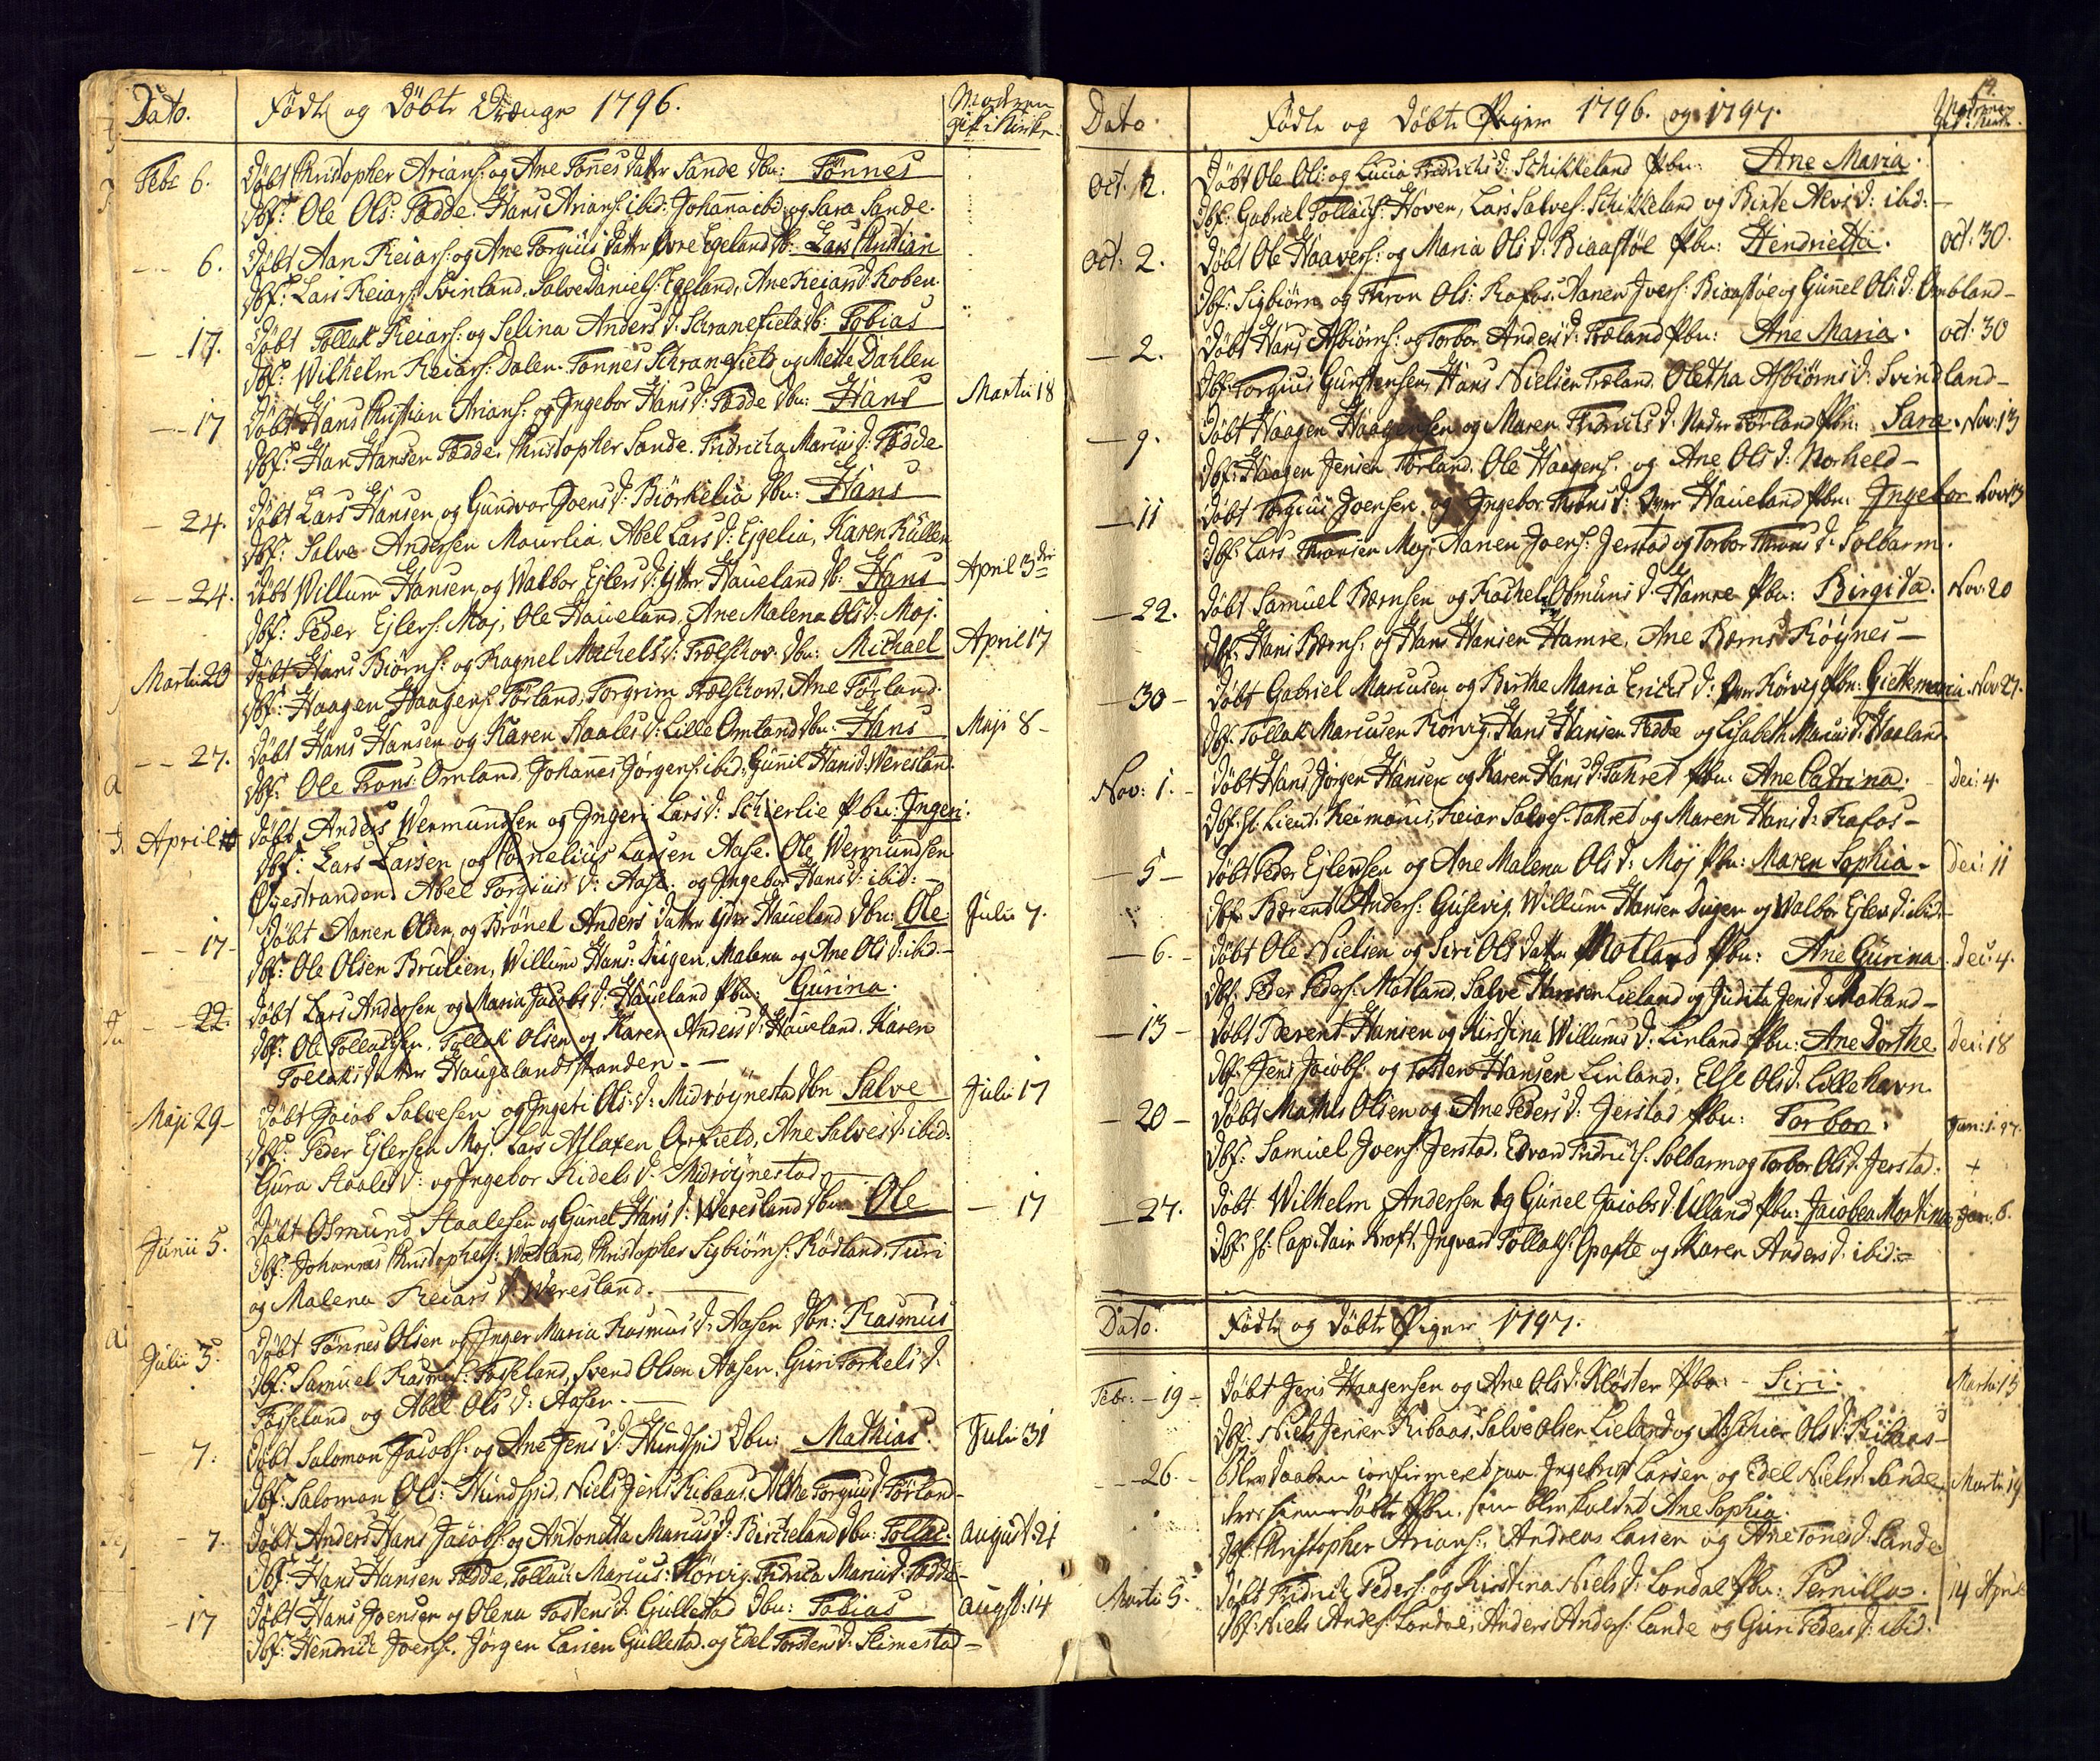 Dato.
Födte og Döbte Drænge 1796.
Modren
gik i Kirke.
Febr 6.
Döbt Christopher Arians: og Ane Tönnes datter Sande dbn: Tönnes
Dbf: Ole Ols: Fædde. Hans Arians: ibid: Johanna ibid: og Sara Sande.
6.
Döbt Aan Reiars: og Ane Torgius datter Övre Egeland db: Lars Christian
Dbf: Lars Reiars: Svinland. Salve Daniels: Egeland, Ane Reiars d: Roben.
17.
Döbt Tollak Reiars: og Selina Anders d: Schranefield db: Tobias
Dbf: Wilhelm Reiars: Dalen. Tönnes Schranefield og Mette Dahlen
17
Döbt Hans Christian Arians: og Ingebor Hans d: Fædde dbn: Hans
Martii 18
Dbf: Han Hansen Fædde. Christopher Sande. Fridricha Marcus d: Fædde
24.
Döbt Lars Hansen og Gundvor Joens d: Biörkelia dbn: Hans
Dbf: Salve Andersen Mourlia. Abel Lars d: Eigelia, Karen Kullen
24.
Döbt Willum Hansen, og Walbor Ejlers d: Ytter Haueland db: Hans
April 3die
Dbf: Peder Ejlers: Moj, Ole Haueland, Ane Malena Ols d: Moj.
Martii 20
Döbt Hans Biörns: og Ragnel Michels d: Trælschov dbn: Michael
April 17
Dbf: Haagen Haagens: Förland, Torgrim Trælschov. Ane Förland.
27.
Döbt Hans Hansen og Karen Staales d: Lille Omland dbn: Hans
Maji 8
Dbf: Ole Trons: Omland. Johannes Jörgens: ibid: Gunnil Hans d: Veresland.
April
Döbt Anders Wermundsen og Ingeri Lars d: Schierlie Pbn: Ingeri.
Dbf: Lars Larsen og Cornelius Larsen Aase. Ole Wermundsen
Öyestranden. Abel Torgius d: Aase. og Ingebor Hans d: ibid:
17
Döbt Aanen Olsen og Brönel Anders datter Ytter Haueland dbn: Ole
Julii 7.
Dbf: Ole Olsen Brulien, Willum Hans: Dugen. Malena og Ane Ols d: ibid:
22.
Döbt Lars Andersen og Maria Jacobs d: Haueland Pbn: Gurina.
Dbf: Ole Tollachsen, Tollak Olsen og Karen Anders d: Haueland. Karen
Tollaks datter Haugelandstranden.
Maji 29
Döbt Jacob Salvesen og Ingeri Ols d: Midröynestad dbn Salve
Julii 17
Dbf: Peder Ejlersen Moj. Lars Atlaksen Orfield, Ane Salves d: ibid:
Gura Staales d: og Ingebor Ridels d: Midröynestad
Junii 5.
Döbt Osmund Staalesen og Gunel Hans d: Weresland dbn Ole
17
Dbf: Johannes Christophers: Watland, Christopher Sigbiörns: Rödland. Turi
og Malena Reiars d: Weresland.
Julii 3.
Döbt Tönnes Olsen og Inger Maria Rasmus d: Aasen dbn: Rasmus
Dbf: Samuel Rasmus: Fosseland, Svend Olsen Aasen. Guri Torkels d:
Fosseland og Abel Ols d: Aasen.
7.
Döbt Salomon Jacobs: og Ane Jens d: Hundspid dbn: Mathias.
Julii 31
Dbf: Salomon Ols: Hundspid, Niels Jens: Ribaas, Athe Torgius d: Förland
7.
Döbt Anders Hans Jacobs: og Antonetta Marcus d: Bircheland dbn: Tollac.
August 21
Dbf: Hans Hansen Fædde, Tollac Marcus: Rörvig, Fridrica Marcus d: Fædde
17
Döbt Hans Joensen og Olena Tostens d: Gullestad dbn: Tobias
August: 14
Dbf: Hendrich Joens: Jörgen Larsen Gullestad og Edel Torstens d: Slimestad
19.
Dato.
Födte og döbte Piger 1796. og 1797.
Modren
gik i Kirke.
Oct. 2.
Döbt Ole Ols: og Lucia Fredrichs d: Schikkeland Pbn: Ane Maria.
Dbf: Gabriel Tollachs: Hoven, Lars Salves: Schikkeland og Birte Alvs d: ibid:
Oct: 2.
Döbt Ole Haavers: og Maria Ols d: Biaastöl Pbn: Hendrietta.
Oct: 30.
Dbf: Sigbiörn og Thron Ols: Rafos. Aanen Ivers: Biaastöe og Gunnel Ols d: Ombland
2.
Döbt Hans Asbiörns: og Torbor Anders d: Træland Pbn: Ane Maria.
Oct: 30
Dbf: Torgius Gunstensen, Hans Nielsen Træland. Oletha Asbiörns d: Svindland
9.
Döbt Haagen Haagensen og Maren Fridrichs d: Nedre Förland Pbn: Sara.
Nov: 13
Dbf: Haagen Jensen Förland. Ole Haagens: og Ane Ols d: Norheld
11
Döbt Torgius Joensen og Ingebor Throns d: Ytter Haueland Pbn: Ingebor
Nov: 13
Dbf: Lars Thronsen Moj. Aanen Joens: Jerstad og Torbor Throns d: Solbarm.
22.
Döbt Samuel Bærnsen og Rachel Osmuns d: Hamre Pbn: Birgita.
Nov: 20
Dbf: Hans Bærns: og Hans Hansen Hamre. Ane Bærns d: Röynes
30
Döbt Gabriel Marcusen og Birthe Maria Erichs d: Rörvig Pbn: Giettemaria.
Nov 27.
Dbf: Tollak Marcusen Rörvig, Hans Hansen Fædde og Lisabeth Marcus d: Haaland.
Nov: 1.
Döbt Hans Jörgen Hansen og Karen Hans d: Tahret Pbn: Ane Catrina.
Dec: 4.
Dbf: Hr Lieut: Reimanus, Reiar Salves: Tahret og Maren Hans d: Rafos
5
Döbt Peder Ejlersen og Ane Malena Ols d: Moj Pbn: Maren Sophia
Dec: 11
Dbf: Bærent Anders: Gusevig, Willum Hansen Duger og Walbor Ejlers d: ibid:
6.
Döbt Ole Nielsen og Siri Ols datter Motland Pbn: Ane Gurina.
Dec: 4.
Dbf: Peder Peders: Motland. Salve Hansen Lieland og Judita Jens d: Motland
13
Döbt Berent Hansen og Kirstina Willums d: Linland Pbn: Ane Dorthe.
Dec: 18
Dbf: Jens Jacobs: og Tosten Hansen Linland. Else Ols d: Lillehavn.
20
Döbt Mathis Olsen og Ane Peders d: Jerstad Pbn: Torbor.
Jan: 1. 97.
Dbf: Samuel Joens: Jerstad. Edvard Fridrichs: Solbarm og Torbor Ols d: Jerstad.
+
27.
Döbt Wilhelm Andersen og Gunnel Jacobs d: Ulland Pbn: Jacobea Mortina
Jan: 6.
Dbf: Hr: Capitain Kraft, Ingvar Tollaks: Opofte og Karen Anders d: ibid:
Dato.
Födte og döbte Piger 1797.
Febr: 19
Döbt Jens Haagensen og Ane Ols d: Klöster Pbn: Siri.
Martii 15
Dbf: Niels Jensen Ribaas, Salve Olsen Lieland og Aschier Ols d: Ribaas
26.
Blev daaben confirmeret paa Ingebrigt Larsen og Edel Niels d: Sande
Martii 19
deres hiemmedöbte Pbn. som blev kaldet Ane Sophia.
Dbf: Christopher Arians: Andreas Larsen og Ane Tönes d: Sande
Martii 5.
Döbt Fridrich Peders: og Kirstina Niels d: Londal Pbn: Pernilla.
14 April
Dbf: Niels Anders: Londal, Anders Anders: Lande og Guri Peders d: ibid.